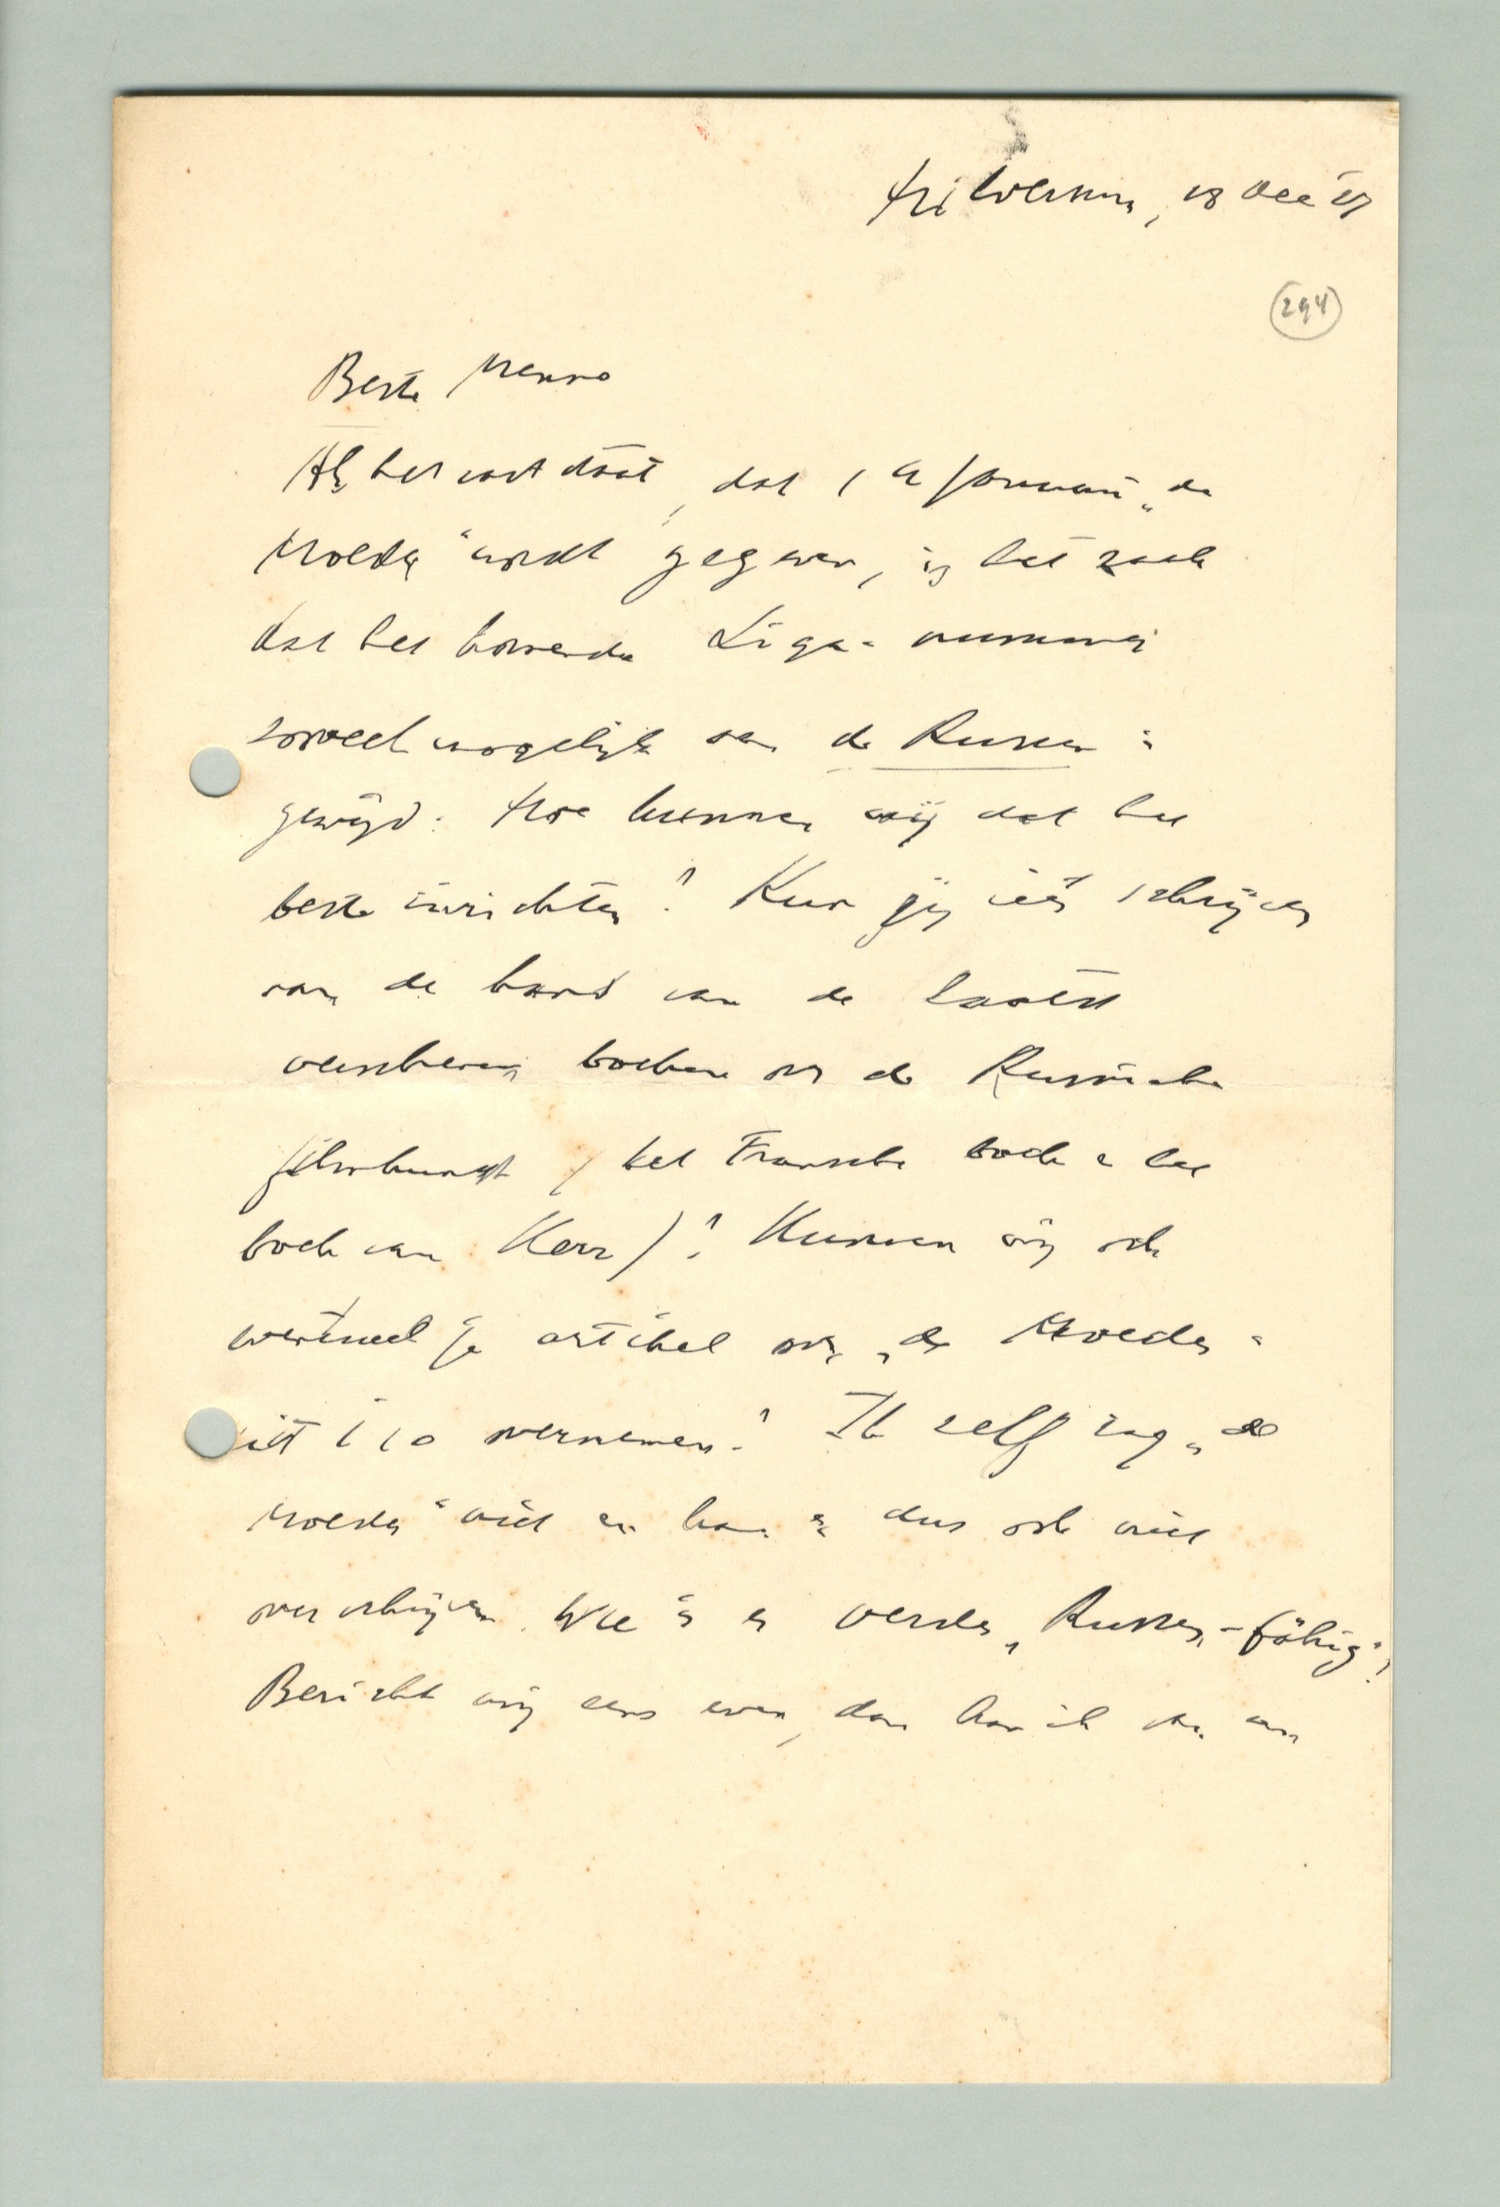 Hilversum, 18 Dec '27
294
Beste Menno
Als het vast staat, dat 1 à januari „de
Moeder" wordt gegeven, is het zaak
dat het komende Liga-nummer
zooveel mogelijk aan de Russen is
gewijd. Hoe kunnen wij dat het
beste inrichten? Kun jij iets schrijven
aan de hand van de laatst
verschenen boeken over de Russische
filmkunst (het Fransche boek en het
boek van Kerr)? Kunnen wij ook
eventueel je artikel over „de Moeder"
uit i 10 overnemen? Ik zelf zag „de
Moeder" niet en kan er dus ook niet
over schrijven. Wie is er verder „Russen-fähig"?
Bericht mij eens even, dan kan ik